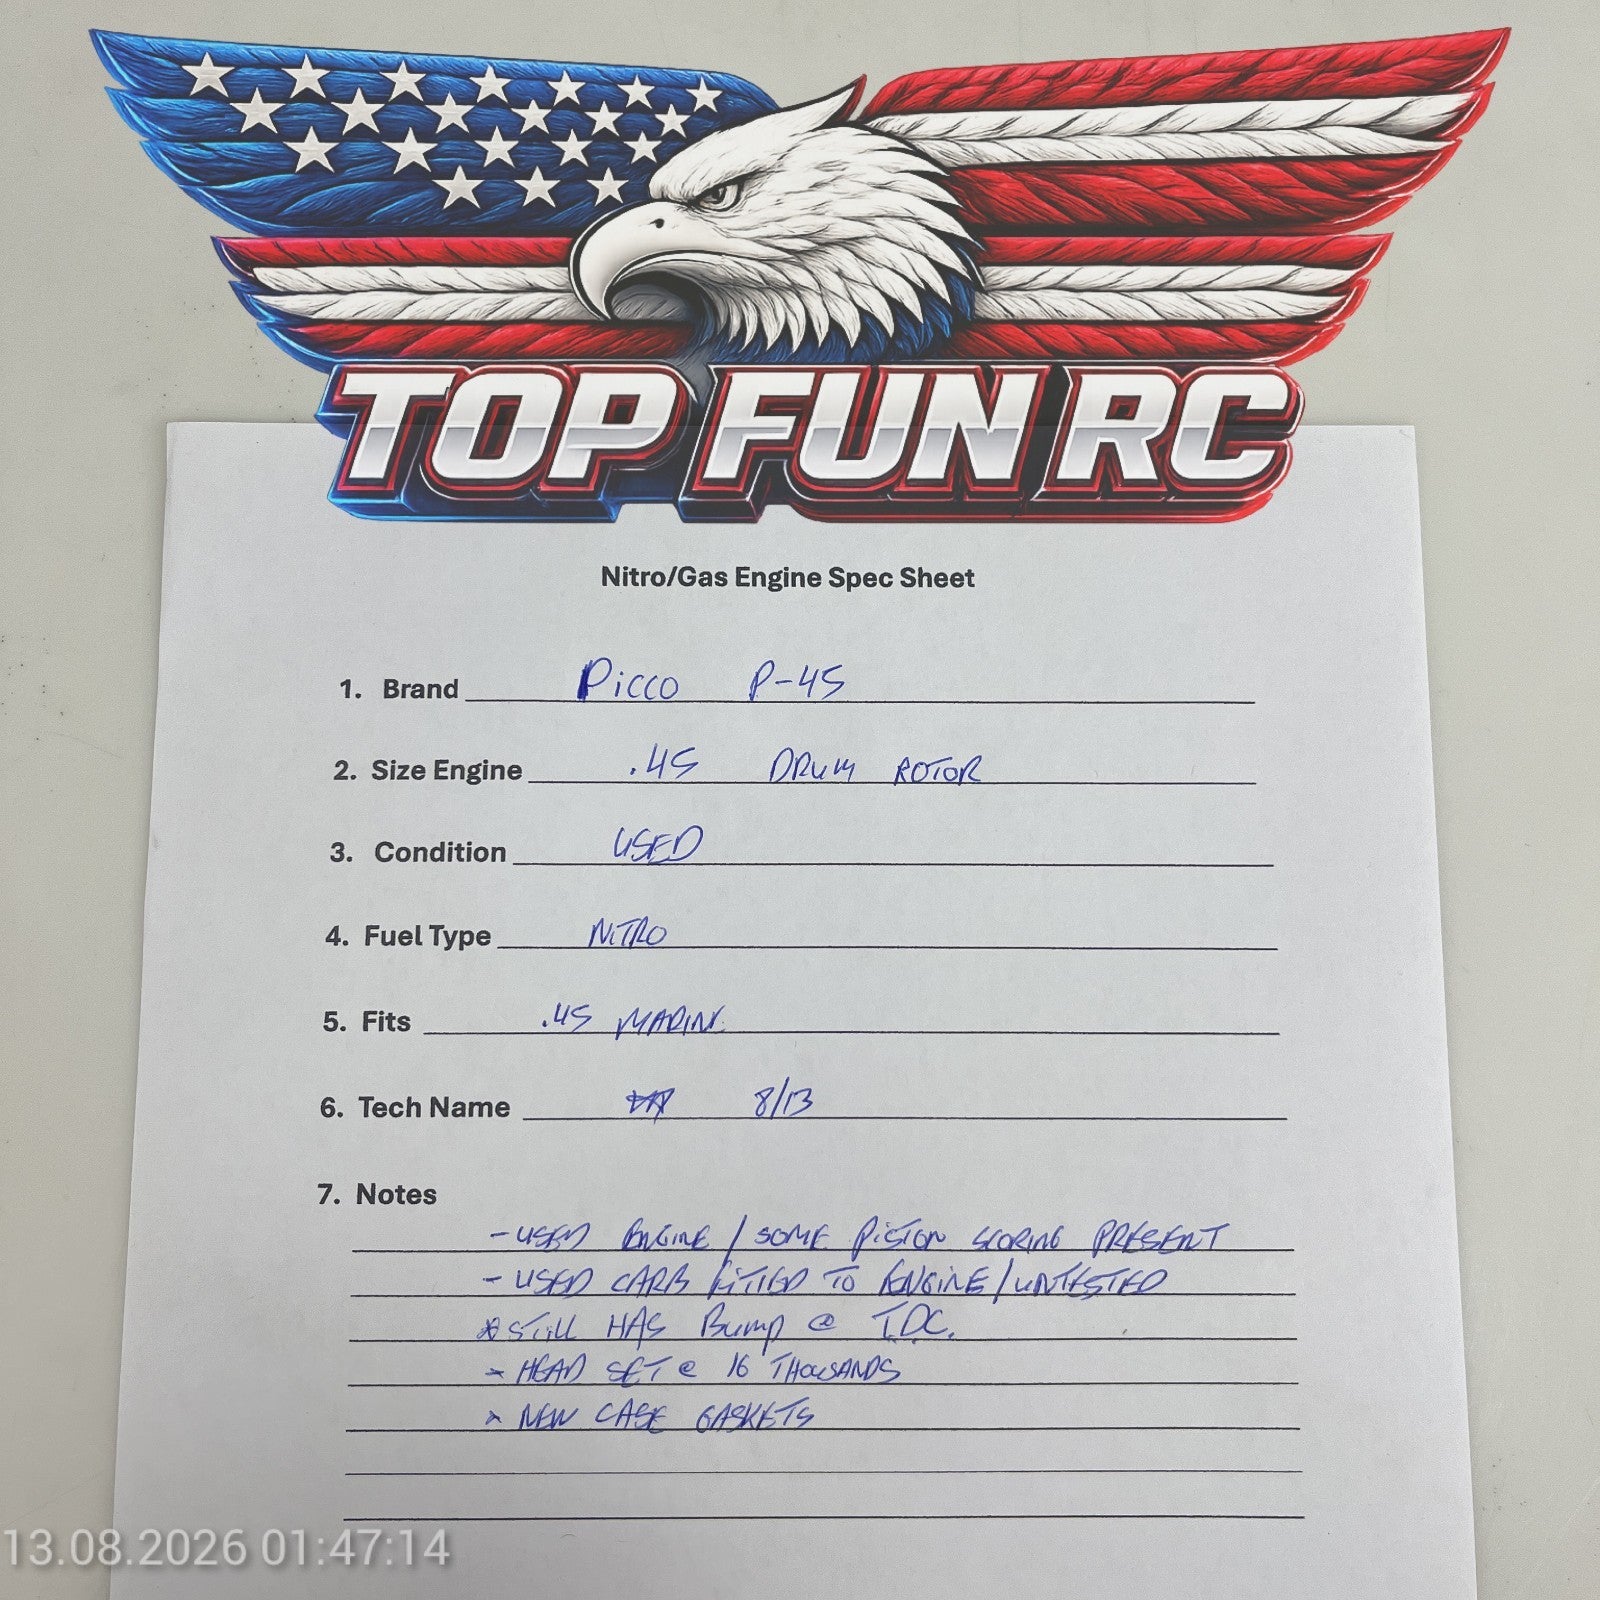 TOP FUN RC
Nitro/Gas Engine Spec Sheet
1. Brand Picco P-45
2. Size Engine .45 DRUM ROTOR
3. Condition USED
4. Fuel Type NITRO
5. Fits .45 MARINE
6. Tech Name 8/13
7. Notes
- USED ENGINE / SOME PISTON SCORING PRESENT
- USED CARB FITTED TO ENGINE / UNTESTED
* STILL HAS BUMP @ T.D.C.
- HEAD SET @ 16 THOUSANDS
- NEW CASE GASKETS
13.08.2026 01:47:14